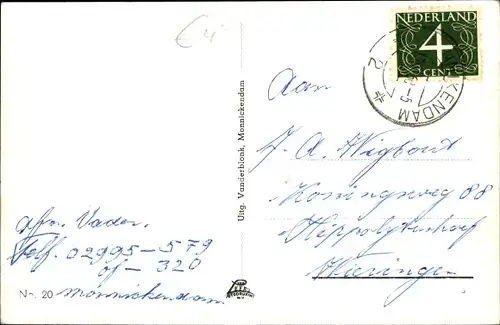 € 4
NEDERLAND
4
CENT
KENDAM
Aan
J. A. Wigbout
Koningsweg 88
Hippolytushoef
Wieringen
Uitg. Vanderblonk, Monnickendam
Afz. Vader.
Telf. 02995-579
of - 320
Nr. 20 Monnickendam